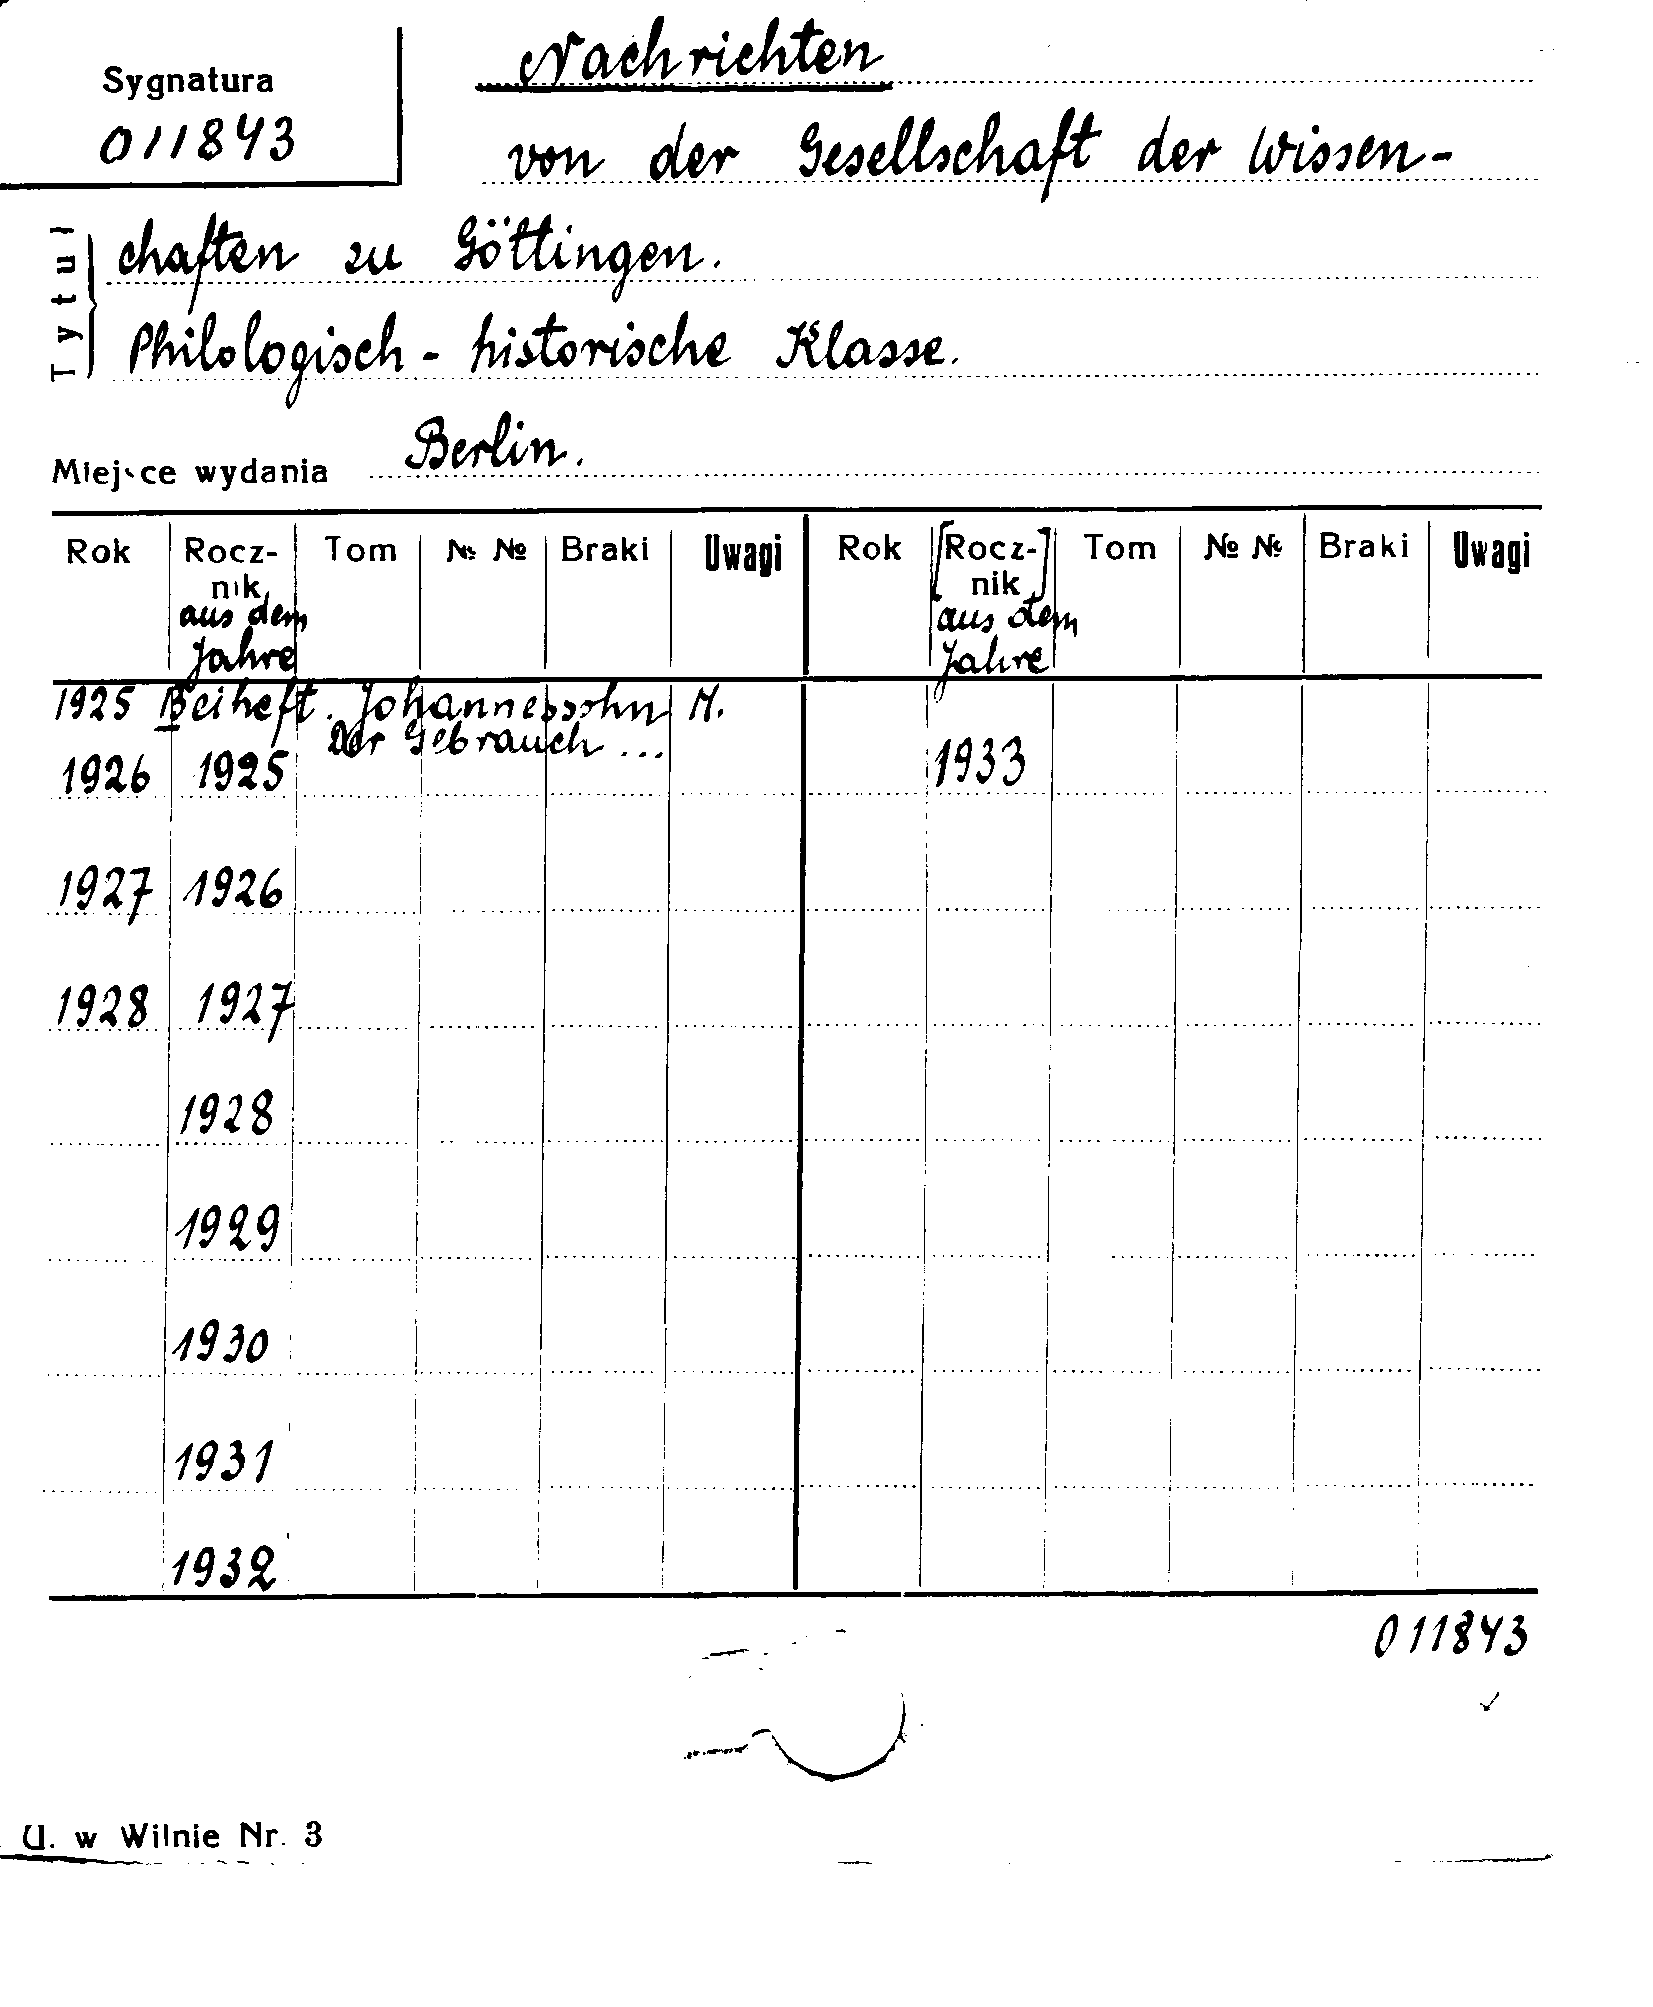 Nachrichten
Sygnatura
011843
von der Gesellschaft der Wissen-
chaften zu Göttingen.
Tytuł
Philologisch-historische Klasse.
Miejsce wydania Berlin.
Rok Rocz- Tom № № Braki Uwagi Rok [Rocz- Tom № № Braki Uwagi
nik nik]
aus dem aus dem
Jahre Jahre
1925 Beiheft. Johannessohn M.
Der Gebrauch ...
1926 1925 1933
1927 1926
1928 1927
1928
1929
1930
1931
1932
011843
U. w Wilnie Nr. 3